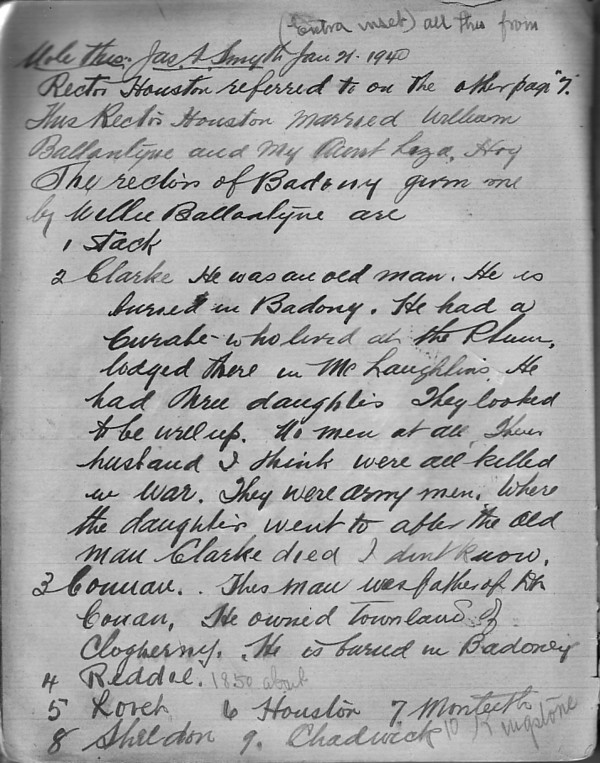 (Extra inset) all this from
Note this: Jas. A Smyth Jan 21. 1940
Rector Houston referred to on the other page "7."
This Rector Houston married William
Ballantyne and my Aunt Liza, Hoy
The rectors of Badony given me
by Willie Ballantyne are
1 Stack
2 Clarke He was an old man. He is
buried in Badony. He had a
Curate who lived at the Plum,
lodged there in Mc Laughlins. He
had three daughters They looked
to be well up. No men at all. Their
husband I think were all killed
in War. They were army men. Where
the daughters went to after the old
man Clarke died I dont know.
3 This man was father of Dr
Conan. He owned Townland of
Clogherny. He is buried in Badoney
4 Reddel. 1850 about
5 Lovet 6 Houston 7. Monteith
8 Sheldon 9. Chadwick 10 Kingstone